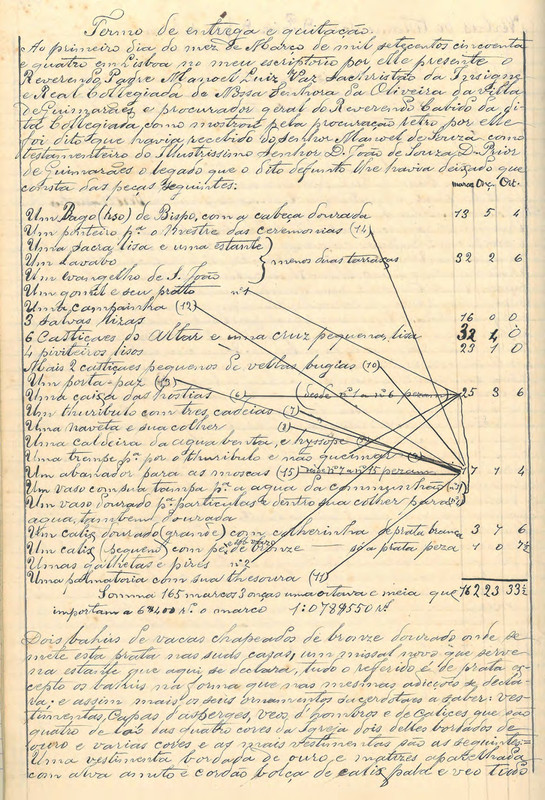 Termo de entrega e quitação.
Ao primeiro dia do mez de Março de mil setecentos cincoenta
e quatro em Lisboa no meu escriptorio por elle presente o
Reverendo Padre Manoel Luiz Vaz Sachristão da Insigne
e Real Collegiada de Nossa Senhora da Oliveira da Villa
de Guimarães e procurador geral do Reverendo Cabido da di-
ta Collegiada, como mostrou pela procuração retro, por elle
foi dito que havia recebido do Senhor Manoel de Souza como
testamenteiro do Illustrissimo Senhor D. João de Souza, D. Prior
de Guimarães o legado que o dito defunto lhe havia deixado que
consta das peças seguintes: marcos Onç. Oit.
Um Bago (liso) de Bispo, com a cabeça dourada 13 5 4
Um ponteiro pª o Mestre das ceremonias (14)
Uma sacra lisa e uma estante
Um lavabo menos duas tarraxas 32 2 6
Um evangelho de S. João
Um gomil e seu prato nº 1
Uma campainha (12)
3 salvas lizas 16 0 0
6 Castiçaes do Altar e uma cruz pequena, lisa 32 1 0
4 piviteiros lisos 23 1 0
Mais 2 castiçaes pequenos de vellas bugias (10)
Um porta-paz
Uma caixa das hostias (6) (desde nº 1 a nº 6 peram 25 3 6
Um thuribulo com tres cadeias (7)
Uma naveta e sua colher (8)
Uma caldeira da agua benta, e hyssope
Uma trempe pª por o thuribulo e não queimar
Um abanador para as moscas (15) nº 7 a nº 15 peram 17 1 4
Um vaso com sua tampa pª a agua da communhão
Um vaso dourado pª particulas e dentro sua colher para
agua, tambem dourada
Um calix dourado (grande) com colherinha de prata branca 3 7 6
Um calix (pequeno) com pé de bronze — só a prata peza 1 0 7½
Umas galhetas e pires nº 2
Uma palmatoria com sua thesoura (11)
Somma 165 marcos 3 onças uma oitava e meia que 162 23 33½
importam a 6$400 rs. o marco 1:078$550 rs.
Dois bahús de vacas chapeados de bronze dourado onde se
mete esta prata nas suas caxas; um missal novo que serve
na estante que aqui se declara, tudo o referido é de prata ex-
cepto os bahús na forma que nas mesmas adicções se decla-
ra; e assim mais os seis ornamentos sacerdotaes a saber: ves-
timentas, Capas d'asperges, veos d'hombros e de calices que são
quatro de lás das quatro cores da Igreja dois delles bordados de
ouro e varias cores e as mais vestimentas são as seguintes=
Uma vestimenta bordada de ouro, e matizes aparelhada
com alva amito e cordão bolça de calix pala e veo tudo